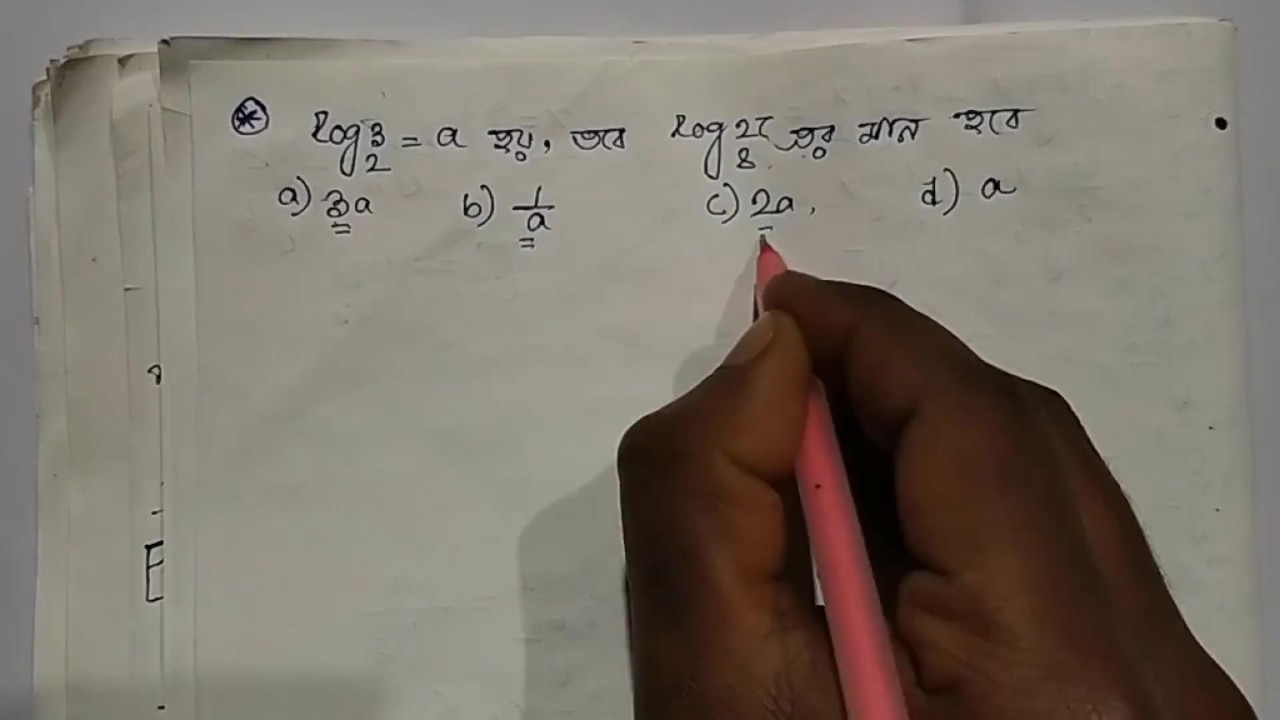 * log₂3 = a হয়, তবে log₈27 এর মান হবে
a) 3a b) 1/a c) 2a, d) a